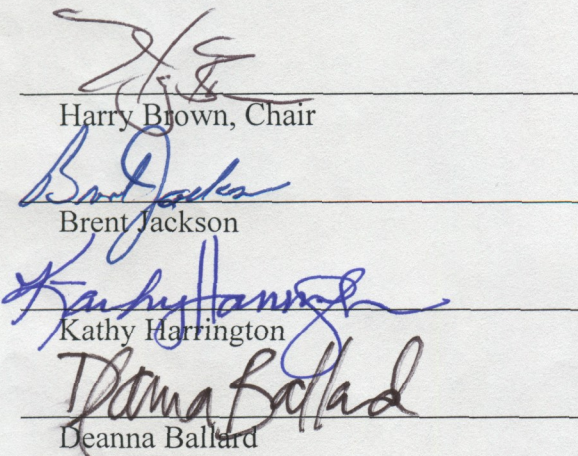 Harry Brown, Chair
Brent Jackson
Brent Jackson
Kathy Harrington
Kathy Harrington
Deanna Ballard
Deanna Ballard